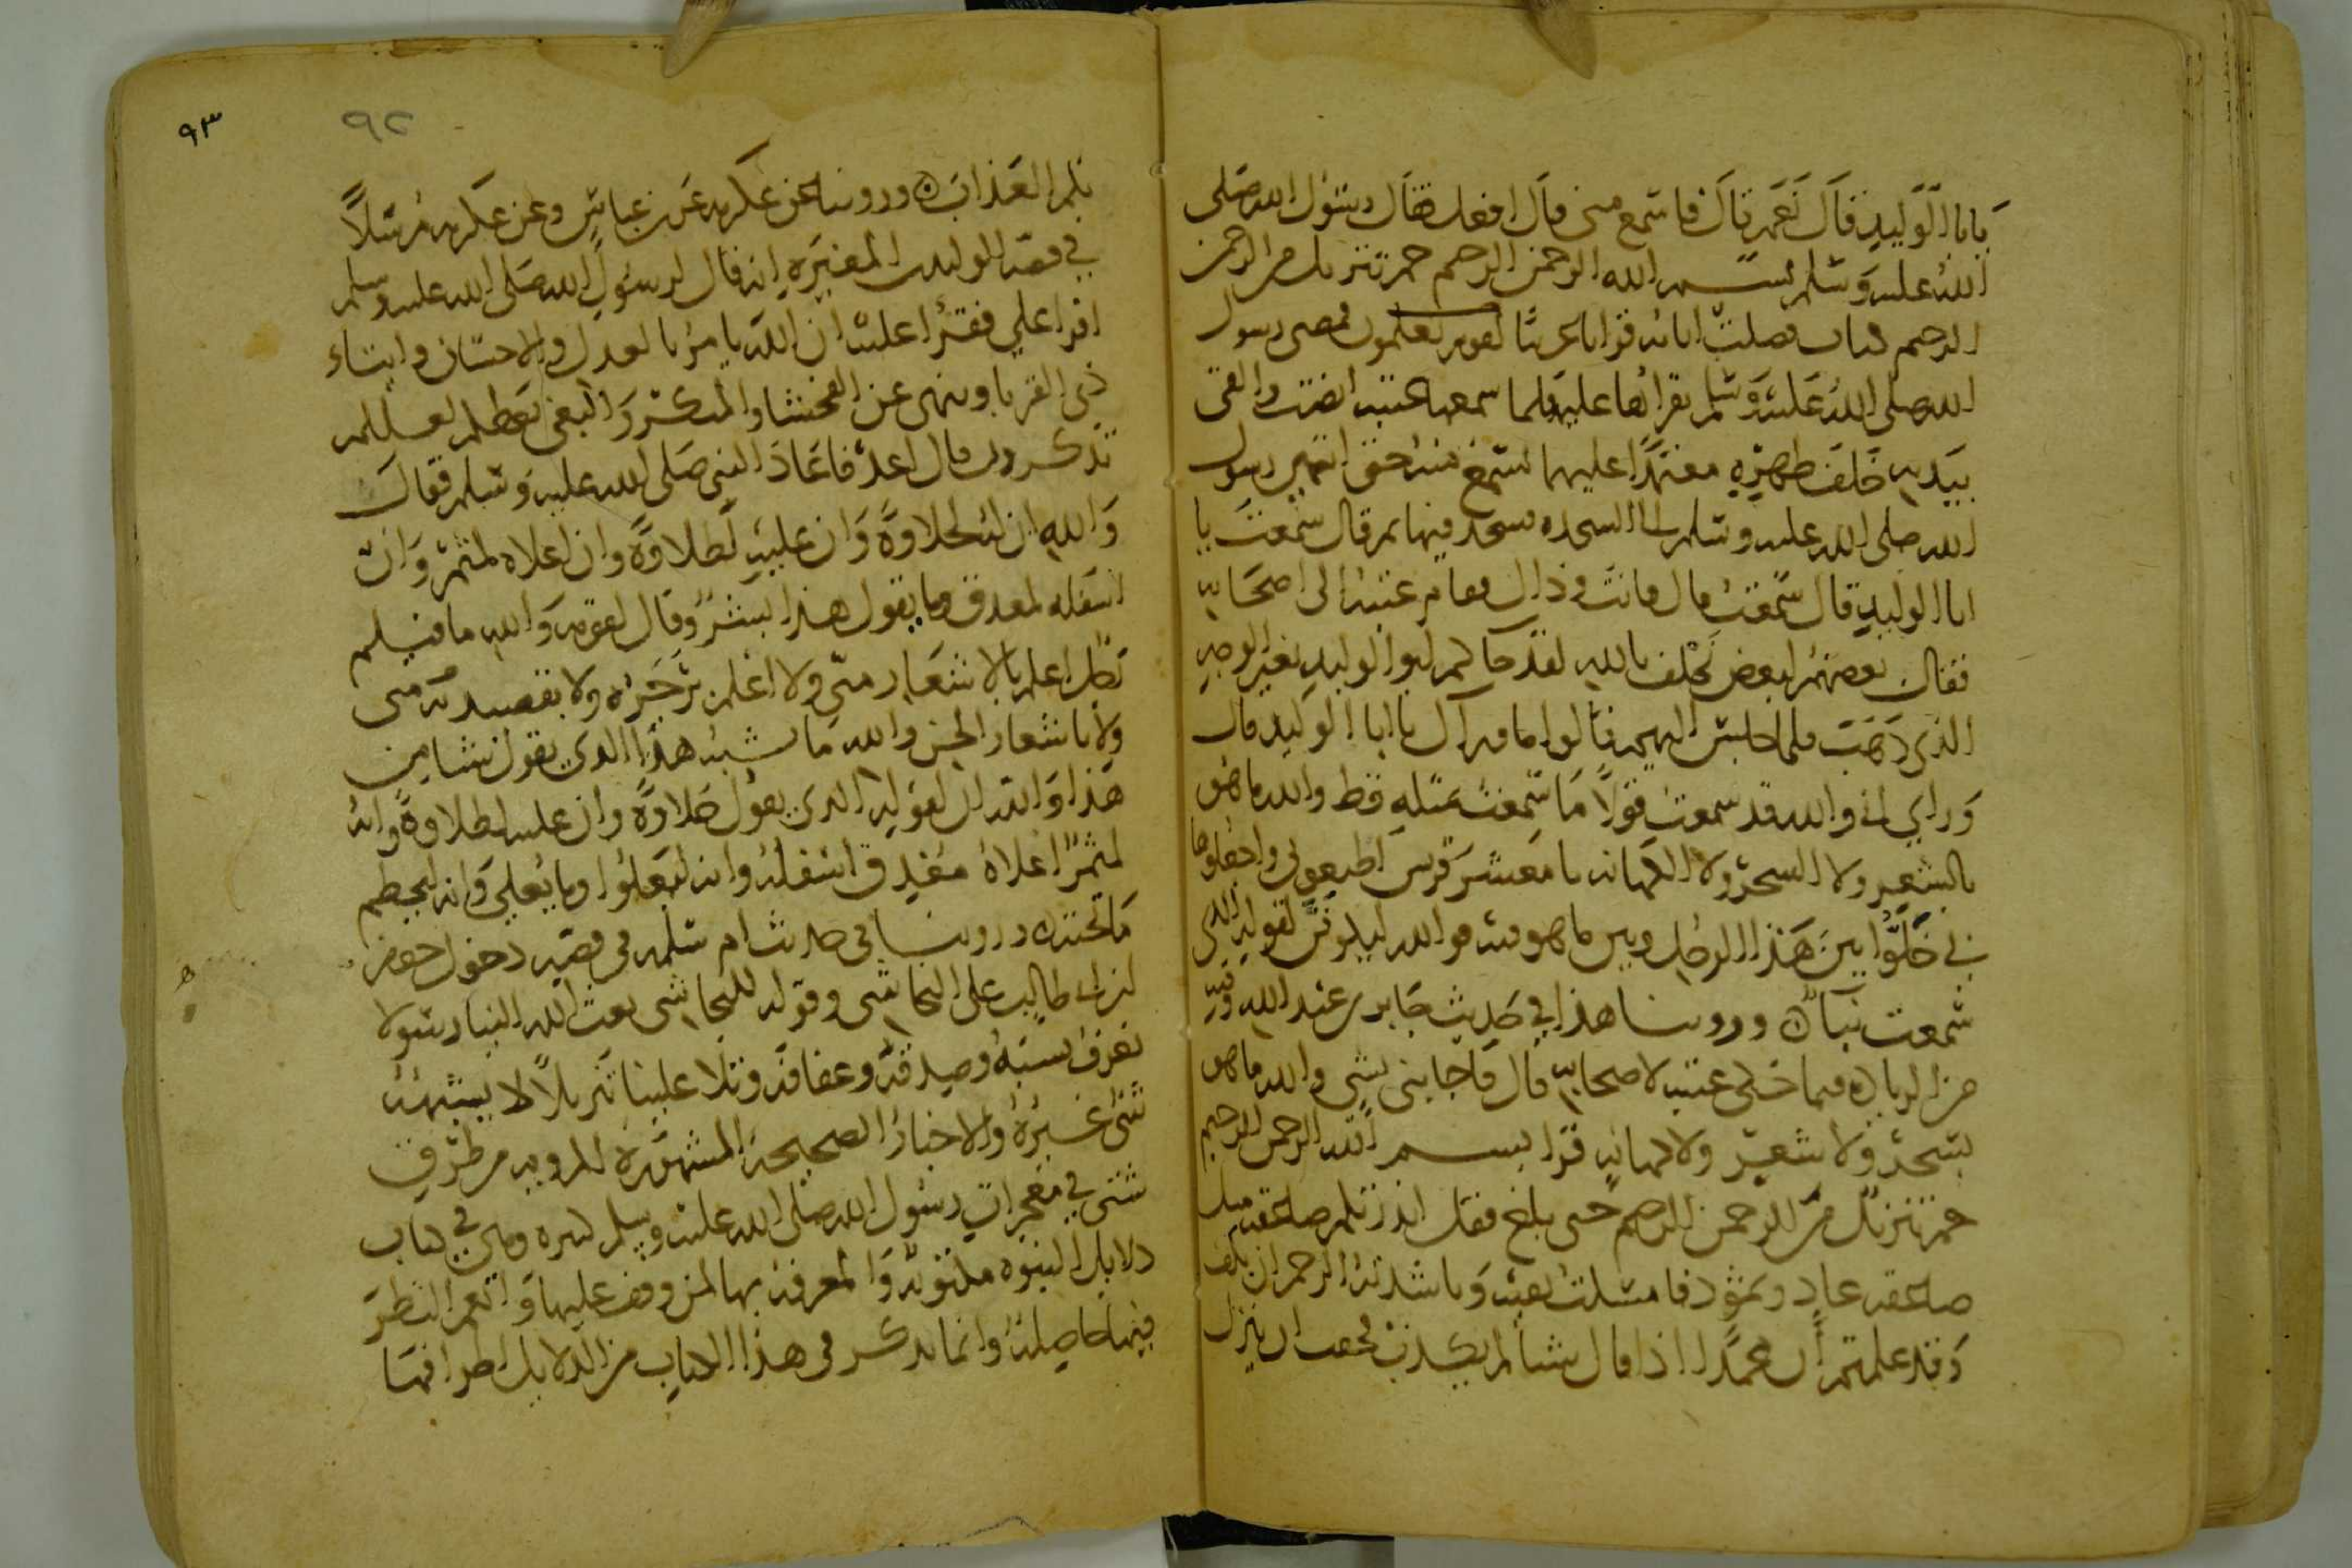 يابا الوليد قال نعم قال فاسمع مني قال افعل فقال رسول الله صلى
الله عليه وسلم بسم الله الرحمن الرحيم حم تنزيل من الرحمن
الرحيم كتاب فصلت اياته قرانا عربيا لقوم يعلمون فمضى رسول
الله صلى الله عليه وسلم يقراها عليه فلما سمعها عتبة انصت والقى
بيديه خلف ظهره معتمدا عليهما يستمع منه حتى انتهى رسول
الله صلى الله عليه وسلم الى السجده فسجد فيها ثم قال سمعت يا
ابا الوليد قال سمعت قال فانت وذاك فقام عتبة الى اصحابه
فقال بعضهم لبعض نحلف بالله لقد جاكم ابو الوليد بغير الوجه
الذي ذهب فلما جلس اليهم قالوا ما وراك يا ابا الوليد قال
وراي اني والله قد سمعت قولا ما سمعت بمثله قط والله ما هو
بالشعر ولا السحر ولا الكهانه يا معشر قريش اطيعوني واجعلوها
بي خلوا بين هذا الرجل وبين ما هو فيه فوالله ليكونن لقوله الذي
سمعت نبا ٥ وروينا هذا في حديث جابر بن عبد الله وفيه
من الزياده فيما حكى عتبة لاصحابه قال فاجابني بشي والله ما هو
بسحر ولا شعر ولا كهانه قرا بسم الله الرحمن الرحيم
حم تنزيل من الرحمن الرحيم حتى بلغ فقل انذرتكم صاعقه مثل
صاعقه عاد وثمود فامسكت بفيه وناشدته الرحم ان يكف
وقد علمتم ان محمدا اذا قال شيا لم يكذب فخفت ان ينزل
بكم العذاب ٥ وروينا عن عكرمه عن بن عباس وعن عكرمه مرسلا
في قصة الوليد بن المغيره انه قال لرسول الله صلى الله عليه وسلم
اقرا علي فقرا عليه ان الله يامر بالعدل والاحسان وايتاء
ذي القربا وينهى عن الفحشا والمنكر والبغي يعظكم لعلكم
تذكرون قال اعد فاعاد النبي صلى الله عليه وسلم فقال
والله ان له لحلاوة وان عليه لطلاوة وان اعلاه لمثمر وان
اسفله لمعدق وما يقول هذا بشر وقال لقومه والله ما فيكم
رجل اعلم بالاشعار مني ولا اعلم برجزه ولا بقصيدته مني
ولا باشعار الجن والله ما يشبه هذا الذي يقول شيا من
هذا والله ان لقوله الذي يقول حلاوة وان عليه لطلاوة وانه
لمثمر اعلاه مغدق اسفله وانه ليعلوا وما يعلى وانه ليحطم
ما تحته ٥ وروينا في حديث ام سلمه في قصه دخول جعفر
بن ابي طالب على النجاشي وقوله للنجاشي بعث الله الينا رسولا
نعرف نسبه وصدقه وعفافه وتلا علينا تنزيلا لا يشبهه
شي غيره والاخبار الصحيحة المشهورة المرويه من طرق
شتى في معجزات رسول الله صلى الله عليه وسلم كثيره وهي في كتاب
دلايل النبوه مكتوبه والمعرفه بها لمن وقف عليها وانعم النظر
فيها حاصله وانما نذكر في هذا الكتاب من الدلايل اطرافها
٩٢
٩٣